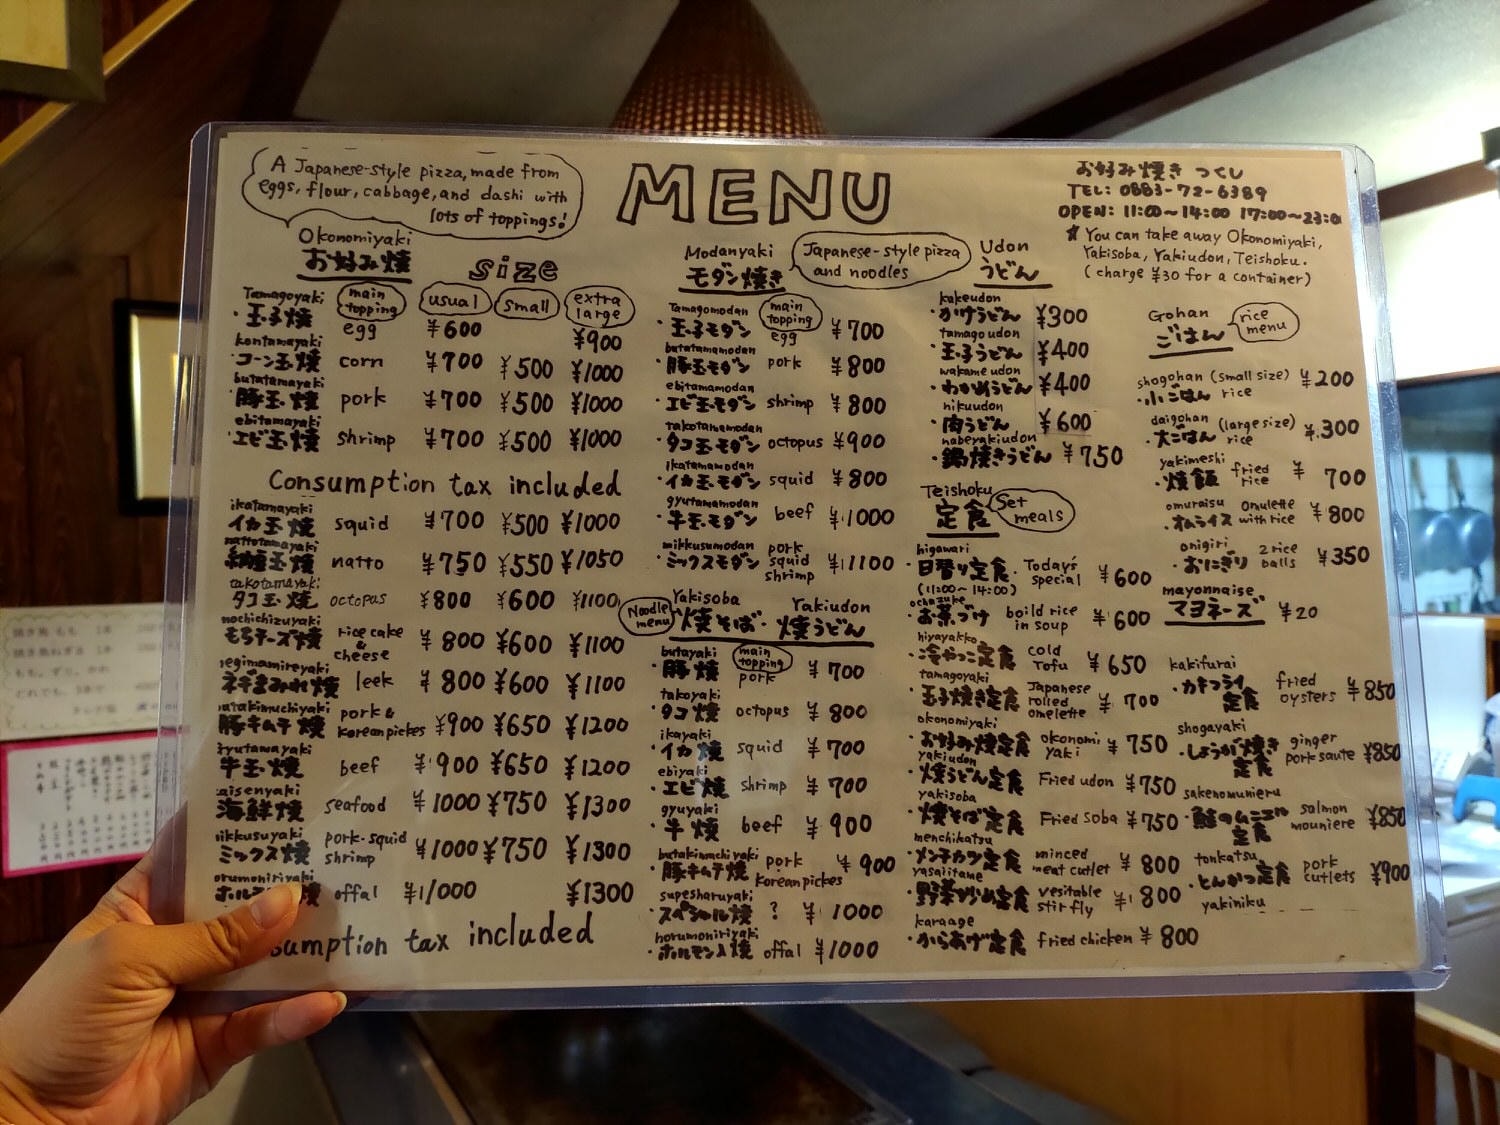 A Japanese-style pizza, made from
eggs, flour, cabbage, and dashi with
lots of toppings!
MENU
お好み焼き つくし
TEL: 0883-72-6389
OPEN: 11:00~14:00 17:00~23:0
You can take away Okonomiyaki,
Yakisoba, Yakiudon, Teishoku.
(charge ¥30 for a container)
Okonomiyaki
お好み焼
size
main topping usual small extra large
Tamagoyaki
・玉子焼 egg ¥600 ¥900
kontamayaki
・コーン玉焼 corn ¥700 ¥500 ¥1000
butatamayaki
・豚玉焼 pork ¥700 ¥500 ¥1000
ebitamayaki
・エビ玉焼 shrimp ¥700 ¥500 ¥1000
Consumption tax included
ikatamayaki
イカ玉焼 squid ¥700 ¥500 ¥1000
nattotamayaki
納豆玉焼 natto ¥750 ¥550 ¥1050
takotamayaki
タコ玉焼 octopas ¥800 ¥600 ¥1100
mochichizuyaki
もちチーズ焼 rice cake & cheese ¥800 ¥600 ¥1100
egimamireyaki
ネギまみれ焼 leek ¥800 ¥600 ¥1100
utakimuchiyaki
豚キムチ焼 pork & Korean pickes ¥900 ¥650 ¥1200
yutamayaki
牛玉焼 beef ¥900 ¥650 ¥1200
aisenyaki
海鮮焼 seafood ¥1000 ¥750 ¥1300
ikkusuyaki
ミックス焼 pork-squid shrimp ¥1000 ¥750 ¥1300
orumoniriyaki
ホルモ 焼 offal ¥1000 ¥1300
sumption tax included
Modanyaki
モダン焼き
Japanese-style pizza
and noodles
Tamagomodan
・玉子モダン main topping egg ¥700
butatamamodan
・豚玉モダン pork ¥800
ebitamamodan
・エビ玉モダン shrimp ¥800
takotamamodan
・タコ玉モダン octopus ¥900
ikatamamodan
・イカ玉モダン squid ¥800
gyutamamodan
・牛玉モダン beef ¥1000
mikkusumodan
・ミックスモダン pork squid shrimp ¥1100
Noodle menu
Yakisoba Yakiudon
焼そば・焼うどん
butayaki
・豚焼 main topping pork ¥700
takoyaki
・タコ焼 octopus ¥800
ikayaki
・イカ焼 squid ¥700
ebiyaki
・エビ焼 shrimp ¥700
gyuyaki
・牛焼 beef ¥900
butakimuchiyaki
・豚キムチ焼 pork Korean pickes ¥900
supesharuyaki
・スペシャル焼 ? ¥1000
horumoniriyaki
・ホルモン入焼 offal ¥1000
Udon
うどん
kakeudon
・かけうどん ¥300
tamago udon
・玉子うどん ¥400
wakame udon
・わかめうどん ¥400
nikuudon
・肉うどん ¥600
nabeyakiudon
・鍋焼きうどん ¥750
Teishoku
定食
Set meals
higawari
・日替り定食 Today's special ¥600
(11:00~14:00)
ochazuke
・お茶づけ boild rice in soup ¥600
hiyayakko
・冷やっこ定食 cold Tofu ¥650
tamagoyaki
・玉子焼き定食 Japanese rolled omelette ¥700
okonomiyaki
・お好み焼定食 okonomi yaki ¥750
yakiudon
・焼うどん定食 Fried udon ¥750
yakisoba
・焼そば定食 Fried Soba ¥750
menchikatsu
・メンチカツ定食 minced meat cutlet ¥800
yasaiitame
・野菜炒め定食 vesitable stir fly ¥800
karaage
・からあげ定食 fried chicken ¥800
Gohan
ごはん
rice menu
shogohan (small size)
・小ごはん rice ¥200
daigohan (large size)
・大ごはん rice ¥300
yakimeshi
・焼飯 fried rice ¥700
omuraisu
・オムライス omulette with rice ¥800
onigiri
・おにぎり 2 rice balls ¥350
mayonnaise
マヨネーズ ¥20
kakifurai
・カキフライ定食 fried oysters ¥850
shogayaki
・しょうが焼き定食 ginger pork saute ¥850
sakenomunieru
・鮭のムニエル定食 salmon mouniere ¥850
tonkatsu
・とんかつ定食 pork cutlets ¥900
yakiniku